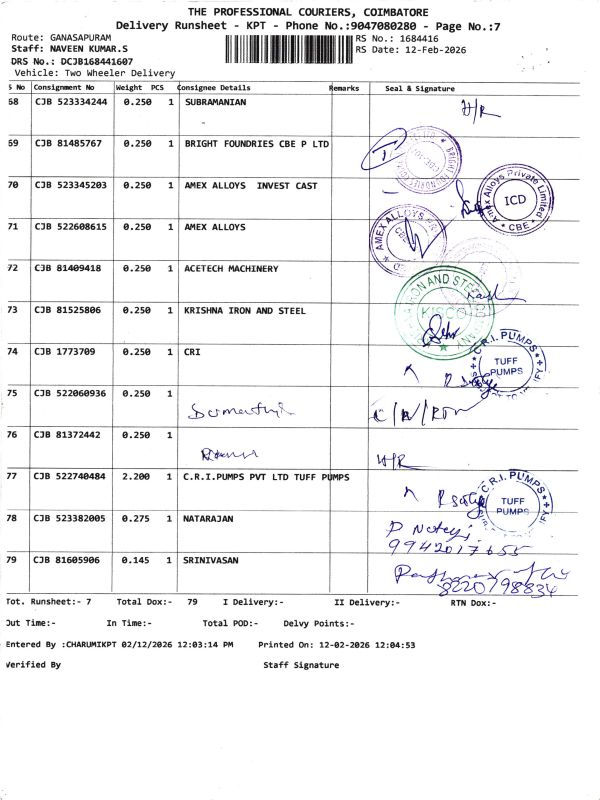 THE PROFESSIONAL COURIERS, COIMBATORE
Delivery Runsheet - KPT - Phone No.:9047080280 - Page No.:7
Route: GANASAPURAM RS No.: 1684416
Staff: NAVEEN KUMAR.S RS Date: 12-Feb-2026
DRS No.: DCJB168441607
Vehicle: Two Wheeler Delivery
S No Consignment No Weight PCS Consignee Details Remarks Seal & Signature
68 CJB 523334244 0.250 1 SUBRAMANIAN H/R
69 CJB 81485767 0.250 1 BRIGHT FOUNDRIES CBE P LTD
70 CJB 523345203 0.250 1 AMEX ALLOYS INVEST CAST Amex Alloys Private Limited ICD CBE
71 CJB 522608615 0.250 1 AMEX ALLOYS AMEX ALLOYS CBE
72 CJB 81409418 0.250 1 ACETECH MACHINERY
73 CJB 81525806 0.250 1 KRISHNA IRON AND STEEL IRON AND STEEL KISCO
74 CJB 1773709 0.250 1 CRI C.R.I. PUMPS TUFF PUMPS
75 CJB 522060936 0.250 1
76 CJB 81372442 0.250 1 H/R
77 CJB 522740484 2.200 1 C.R.I.PUMPS PVT LTD TUFF PUMPS C.R.I. PUMPS TUFF PUMPS
78 CJB 523382005 0.275 1 NATARAJAN
9942017655
79 CJB 81605906 0.145 1 SRINIVASAN
8220798834
Tot. Runsheet:- 7 Total Dox:- 79 I Delivery:- II Delivery:- RTN Dox:-
Out Time:- In Time:- Total POD:- Delvy Points:-
Entered By :CHARUMIKPT 02/12/2026 12:03:14 PM Printed On: 12-02-2026 12:04:53
Verified By Staff Signature